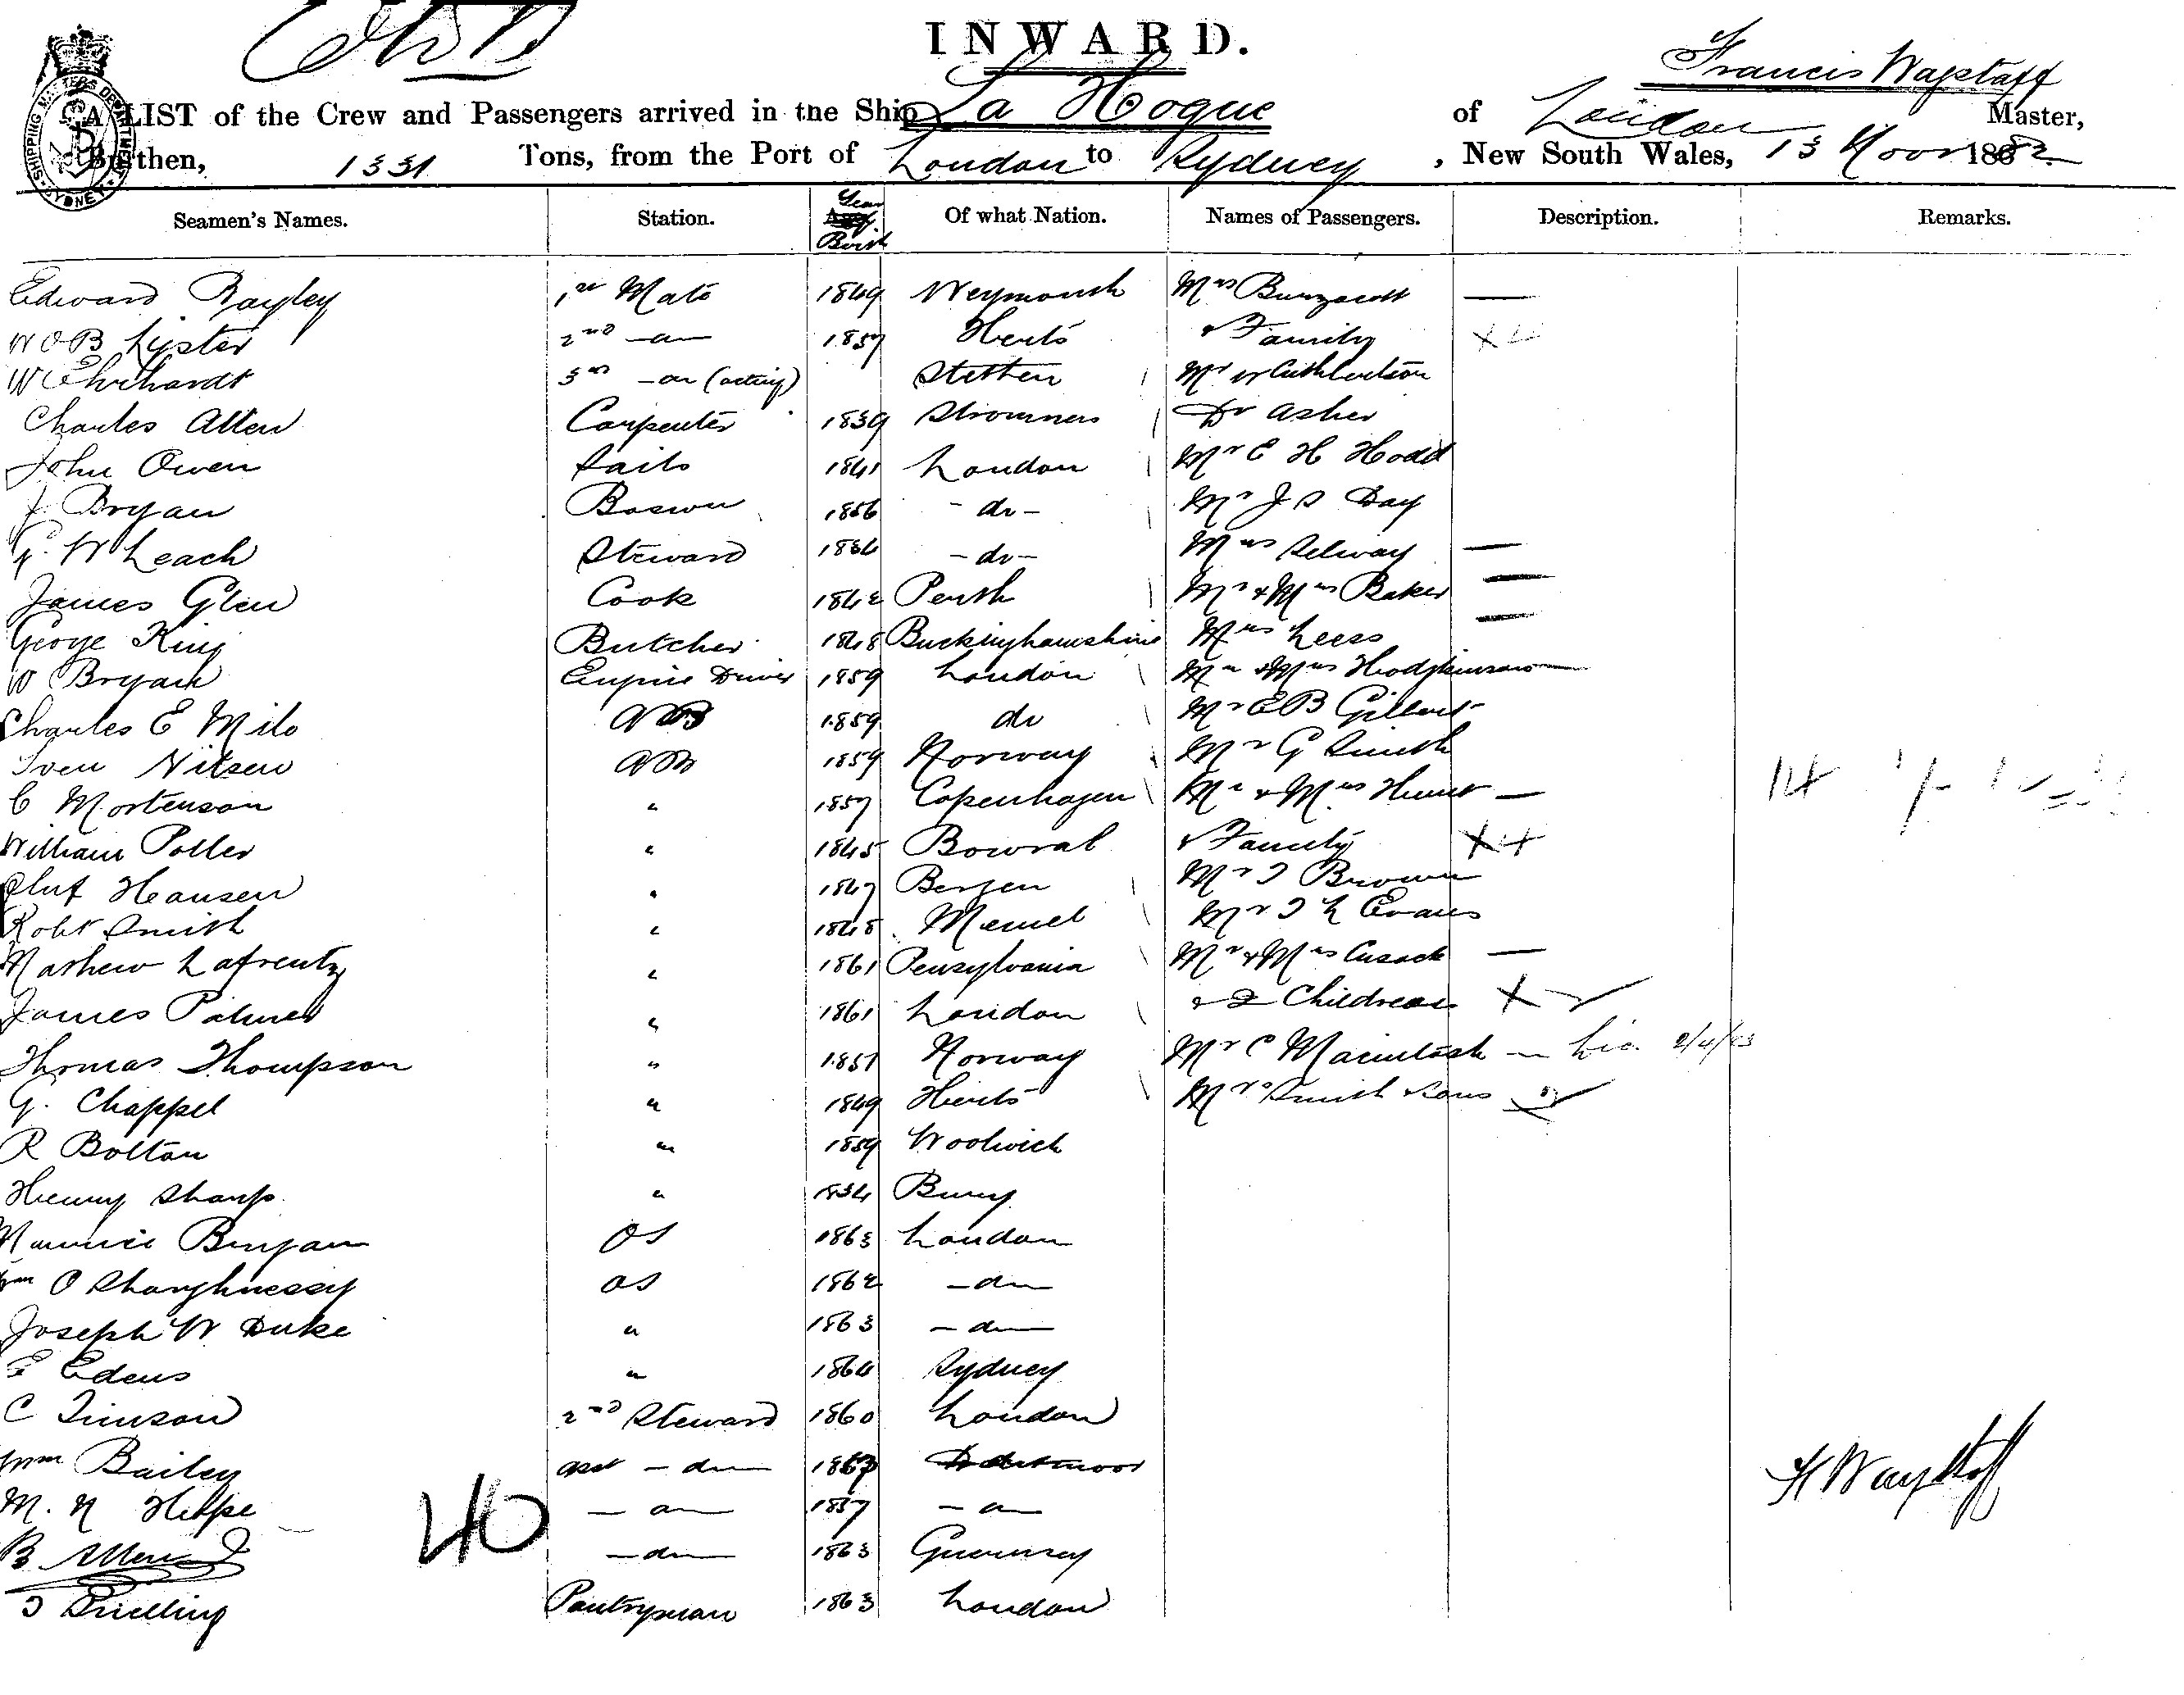 INWARD.
Francis Wagstaff
A LIST of the Crew and Passengers arrived in the Ship La Hogue of London Master,
Burthen, 1331 Tons, from the Port of London to Sydney, New South Wales, 13 Novr 1882
SHIPPING MASTERS DEPARTMENT SYDNEY
Seamen's Names. Station. Year Birth Of what Nation. Names of Passengers. Description. Remarks.
Edward Bayley 1st Mate 1849 Weymouth Mrs
W O B Lyster 2nd -do- 1857 Herts & Family
W Ehrhardt 3rd -do- (acting) Stetten Mr W Cuthbertson
Charles Allen Carpenter 1839 Stromness Dr Asher
John Owen Sails 1841 London Mr E H Hodd
J. Bryan Boswn 1856 - do - Mr J S Day
G. W Leach Steward 1834 - do - Mrs Selway
James Glen Cook 1842 Perth Mr & Mrs Baker
George King Butcher 1848 Buckinghamshire Mrs Leess
W Bryan Engine Driver 1859 London Mr & Mrs Hodgkinson
Charles E Milo AB 1859 do Mr E B Gilbert
Sven Nilsen AB 1859 Norway Mr G Smith
C Mortenson " 1857 Copenhagen Mr & Mrs Hunt
William Potter " 1845 Bowral & Family
Oluf Hansen " 1847 Bergen Mr T Brown
Robt Smith " 1848 Memel Mr T L Evans
Mathew Lafrentz " 1861 Pensylvania Mr & Mrs Cusack
James Palmer " 1861 London & 2 Children
Thomas Thompson " 1857 Norway Mr C Macintosh
G. Chappel " 1849 Herts Mrs Smith & Sons
R Bolton " 1859 Woolwich
Henry Sharp " 1834 Bury
Maurice Bunyan OS 1863 London
Wm O Shaughnessy OS 1862 - do -
Joseph W Duke " 1863 - do -
E Edens " 1864 Sydney
C Timson 2nd Steward 1860 London
Wm Bailey Asst - do - Dartmoor
M. N 1857 - do -
40
B. Allen - do - 1863 Guernsey
T Snelling Pantryman 1863 London
F Wagstaff